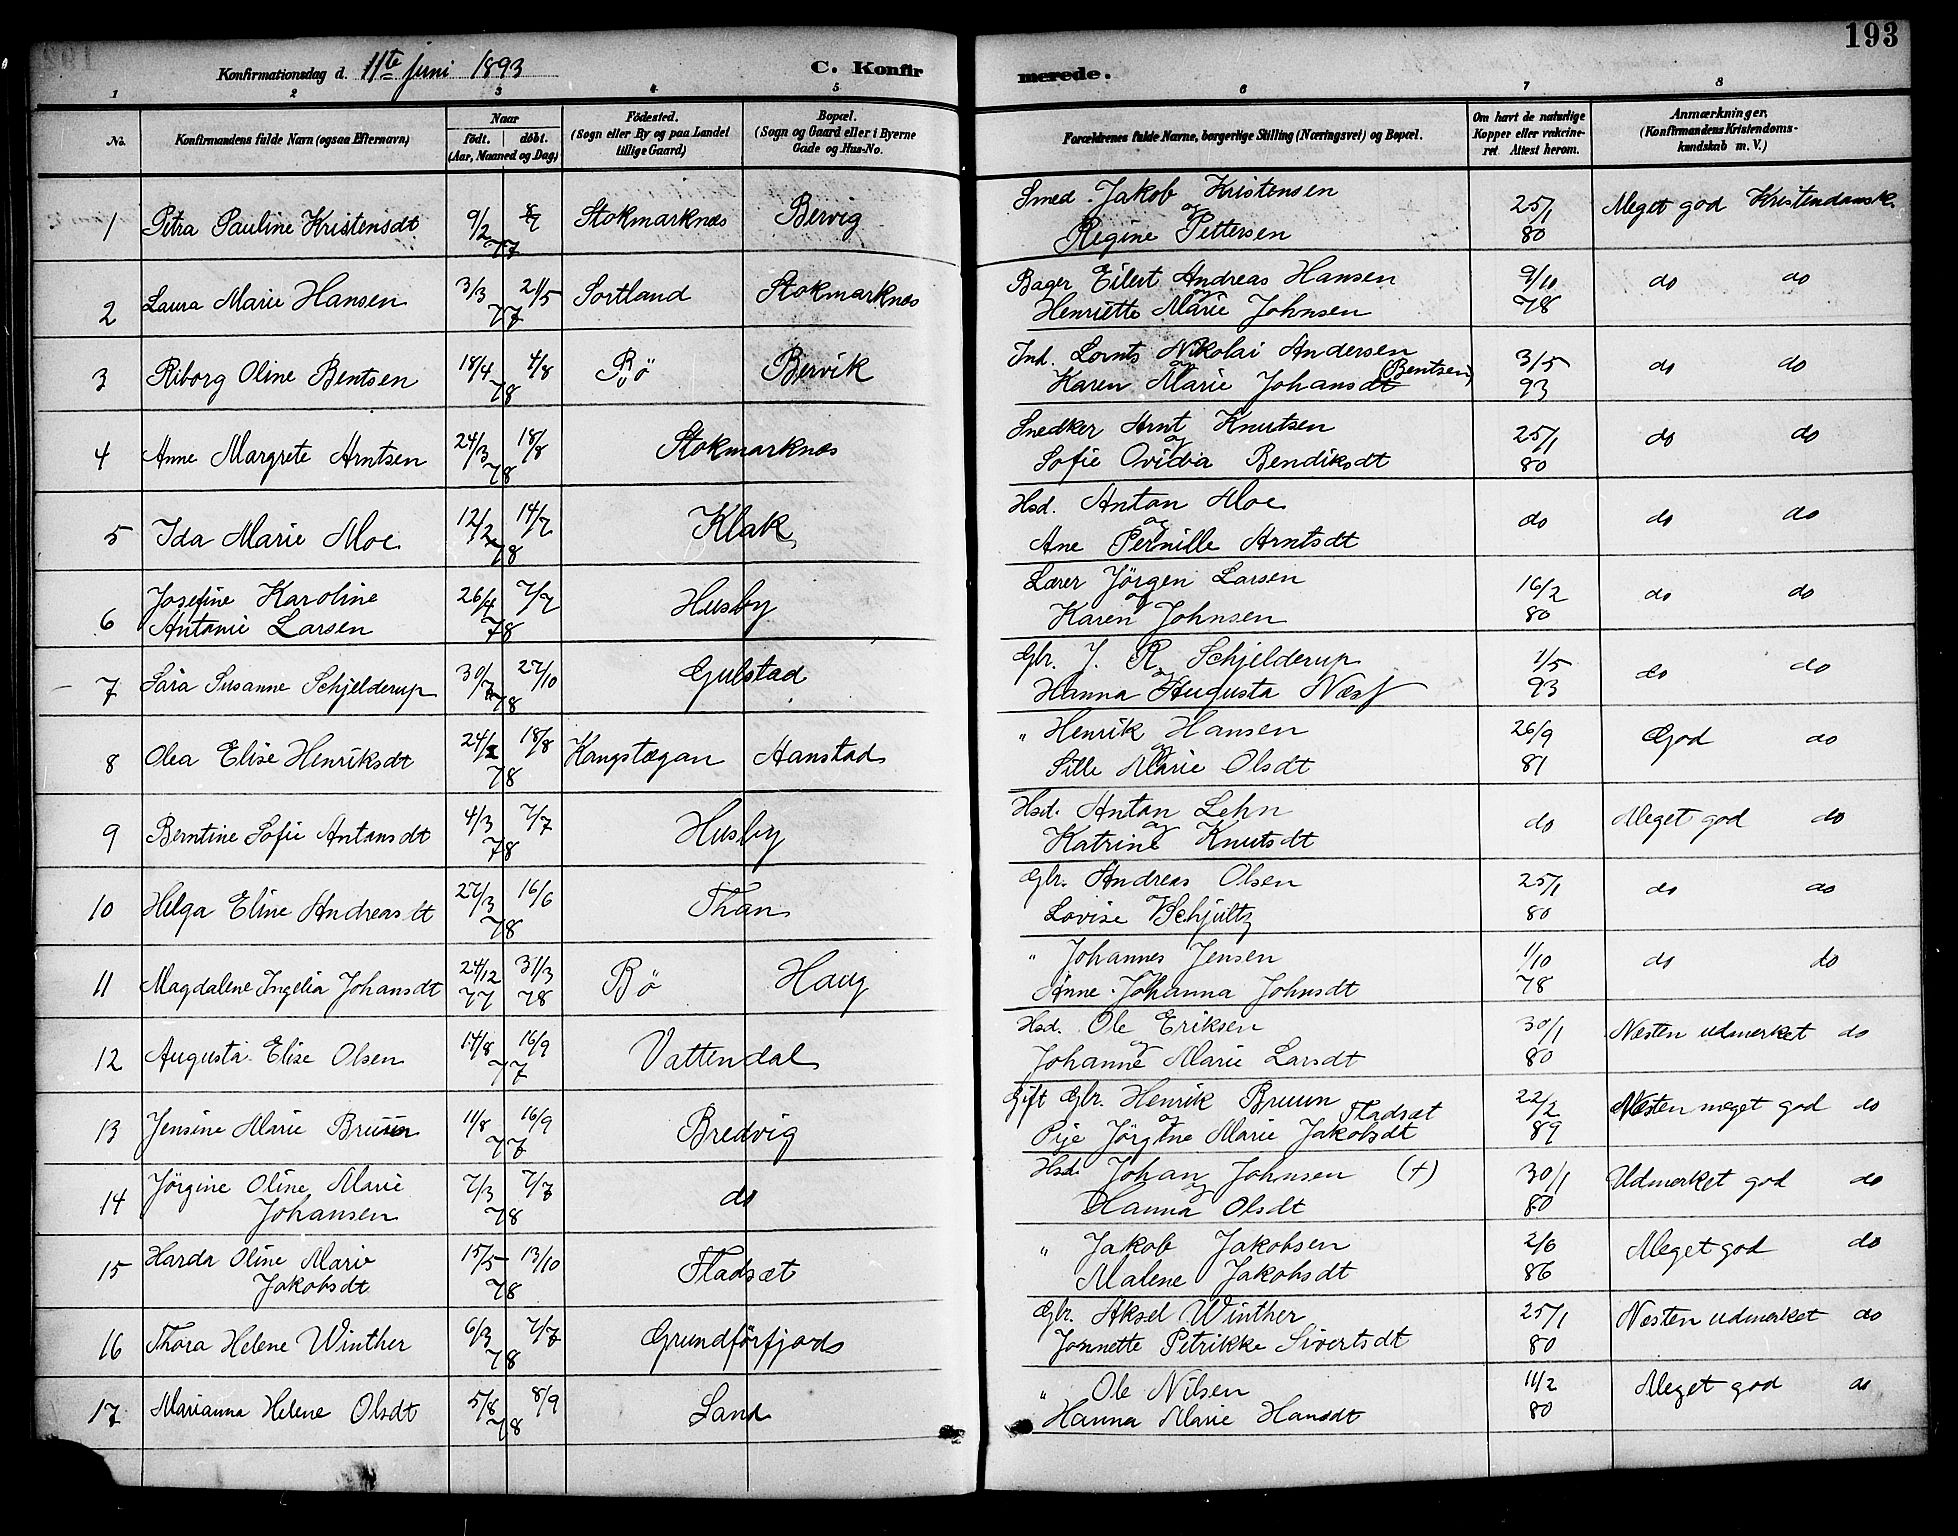 193
Konfirmationsdag d. 11te juni 1893 C. Konfirmerede.
1 2 3 4 5 6 7 8
No. Konfirmandens fulde Navn (ogsaa Efternavn) Naar født. døbt. (Aar, Maaned og Dag) Fødested. (Sogn eller By og paa Landet tillige Gaard) Bopæl. (Sogn og Gaard eller i Byerne Gade og Hus-No. Forældrenes fulde Navne, borgerlige Stilling (Næringsvei) og Bopæl. Om havt de naturlige Kopper eller vakcineret. Attest herom. Anmærkninger. (Konfirmandens Kristendomskundskab m. V.)
1 Petra Pauline Kristensdt 9/2 77 Stokmarknæs Bervig Smed. Jakob Kristensen og Regine Pettersen 25/1 80 Meget god Kristendomsk.
2 Laura Marie Hansen 3/3 21/5 77 Sortland Stokmarknæs Bager Eilert Andreas Hansen og Henriette Marie Johnsen 9/10 78 do do
3 Riborg Oline Bentsen 18/4 4/8 78 Bö Bervik Ind. Lornts Nikolai Andersen (Bentsen) og Karen Marie Johansdt 3/5 93 do do
4 Anne Margrete Arntsen 24/3 18/8 78 Stokmarknæs Snedker Arnt Knutsen og Sofie Ovidia Bendiksdt 25/1 80 do do
5 Ida Marie Moe 12/2 14/7 78 Klak Hsd. Anton Moe og Ane Pernille Arntsdt do do do
6 Josefine Karoline Antonie Larsen 26/4 7/7 78 Husby Lærer Jörgen Larsen og Karen Johnsen 16/2 80 do do
7 Sara Susanne Schjelderup 30/7 27/10 78 Gulstad Gbr. J. R. Schjelderup og Hanna Augusta Næss 1/5 93 do do
8 Olea Elise Henriksdt 24/2 18/8 78 Kongstægan Hanstad " Henrik Hansen og Sille Marie Olsdt 26/9 81 God do
9 Berntine Sofie Antonsdt 4/3 7/7 78 Husby Hsd. Anton Lehn og Katrine Knutsdt do Meget god do
10 Helga Eline Andreasdt 27/3 16/6 78 Than Gbr. Andreas Olsen Lovise Schjultz 25/1 80 do do
11 Magdalene Ingelia Johansdt 24/12 77 31/3 78 Bö Haug " Johannes Jensen Anne Johanna Johnsdt 1/10 78 do do
12 Augusta Elise Olsen 14/8 16/9 77 Vattendal Hsd. Ole Eriksen og Johanne Marie Larsdt 30/1 80 Næsten udmerket do
13 Jensine Marie Bruun 11/8 16/9 77 Bredvig Gift Gbr. Henrik Bruun Fladsæt og Pije Jörgine Marie Jakobsdt 22/2 89 Næsten meget god do
14 Jörgine Oline Marie Johansen 7/3 7/7 78 do Hsd. Johan Johnsen (+) og Hanna Olsdt 30/1 80 Udmerket god do
15 Harda Oline Marie Jakobsdt 15/5 13/10 78 Fladsæt " Jakob Jakobsen Malene Jakobsdt 2/6 86 Meget god do
16 Thora Helene Winther 6/3 7/7 78 Grundförfjord Gbr. Aksel Winther Jonnette Petrikke Sivertsdt 25/1 80 Næsten udmerket do
17 Marianna Helene Olsdt 5/8 8/9 78 Sand " Ole Nilsen Hanna Marie Hansdt 11/2 80 Meget god do